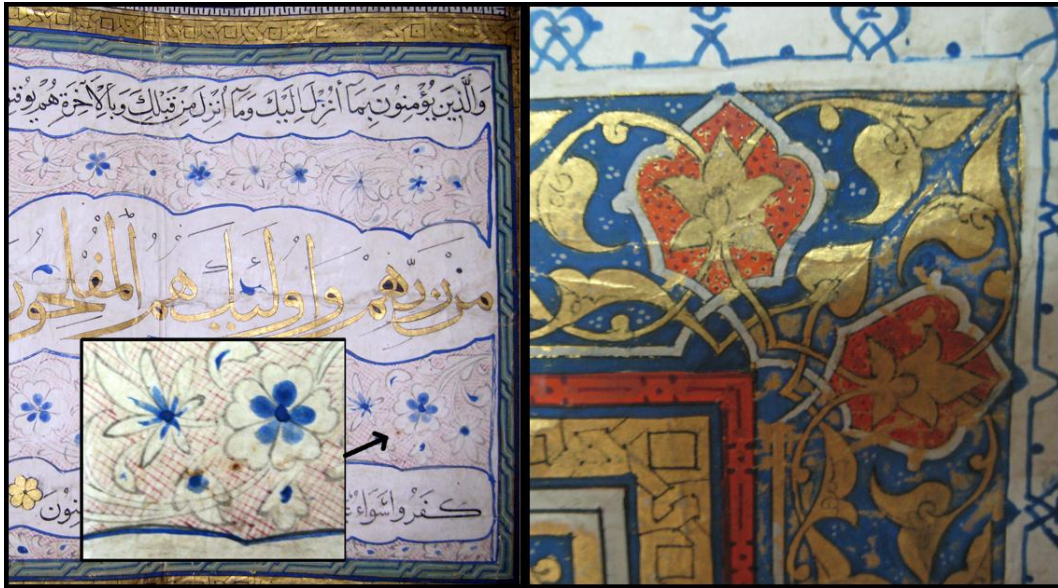 وَالَّذِينَ يُؤْمِنُونَ بِمَا أُنْزِلَ إِلَيْكَ وَمَا أُنْزِلَ مِنْ قَبْلِكَ وَبِالْآخِرَةِ هُمْ
مِنْ رَبِّهِمْ وَاُولٰئِكَ هُمُ الْمُفْلِحُونَ
كَفَرُوا سَوَاءٌ